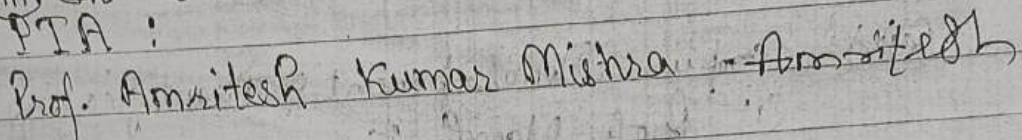 PTA :
Prof. Amritesh Kumar Mishra - Amritesh